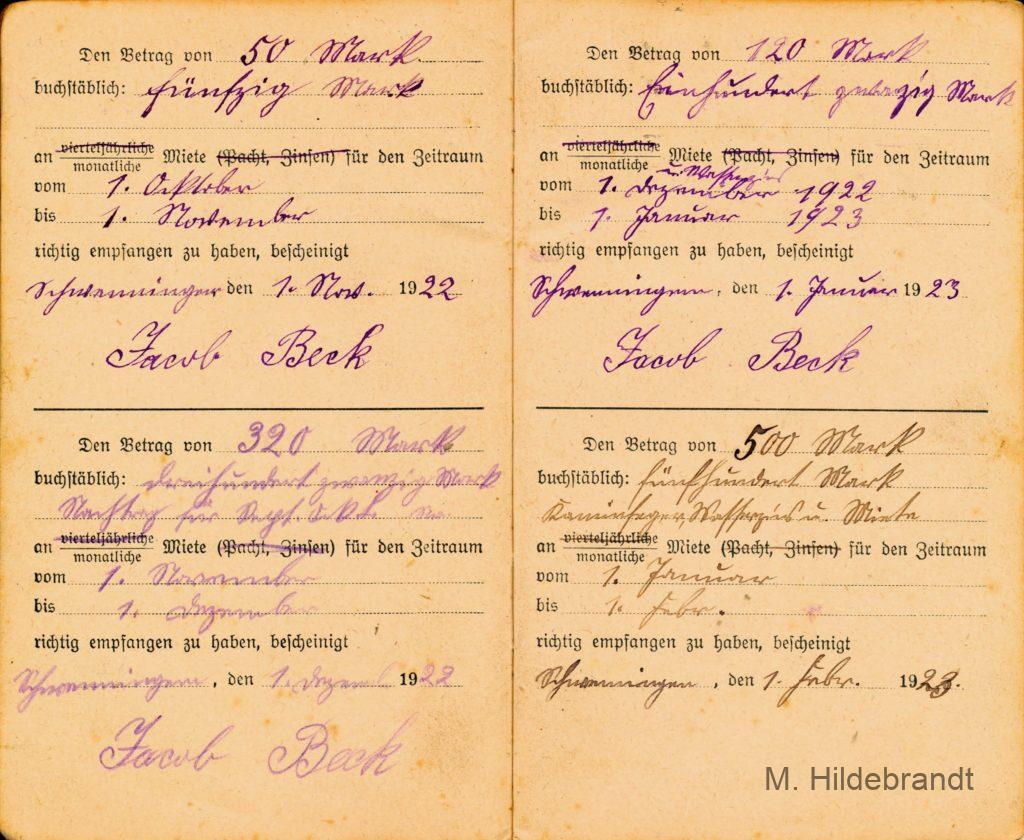 Den Betrag von 50 Mark.
buchstäblich: fünfzig Mark
an vierteljährliche monatliche Miete (Pacht, Zinsen) für den Zeitraum
vom 1. Ocktober
bis 1. November
richtig empfangen zu haben, bescheinigt
Schwenningen den 1. Nov. 1922
Jacob Beck
Den Betrag von 320 Mark
buchstäblich: Dreihundert zwanzig Mark
Nachtrag für Sept. Ockt.
an vierteljährliche monatliche Miete (Pacht, Zinsen) für den Zeitraum
vom 1. November
bis 1. Dezember
richtig empfangen zu haben, bescheinigt
Schwenningen, den 1. Dezem 1922
Jacob Beck
Den Betrag von 120 Mark
buchstäblich: Einhundert zwazig Mark
an vierteljährliche monatliche Miete (Pacht, Zinsen) für den Zeitraum
u. Wasserzins
vom 1. Dezember 1922
bis 1. Januar 1923
richtig empfangen zu haben, bescheinigt
Schwenningen, den 1. Januar 1923
Jacob Beck
Den Betrag von 500 Mark
buchstäblich: fünfhundert Mark
Kaminfeger, Wasserzins u. Miete
an vierteljährliche monatliche Miete (Pacht, Zinsen) für den Zeitraum
vom 1. Januar
bis 1. Febr.
richtig empfangen zu haben, bescheinigt
Schwenningen, den 1. Febr. 1923.
M. Hildebrandt